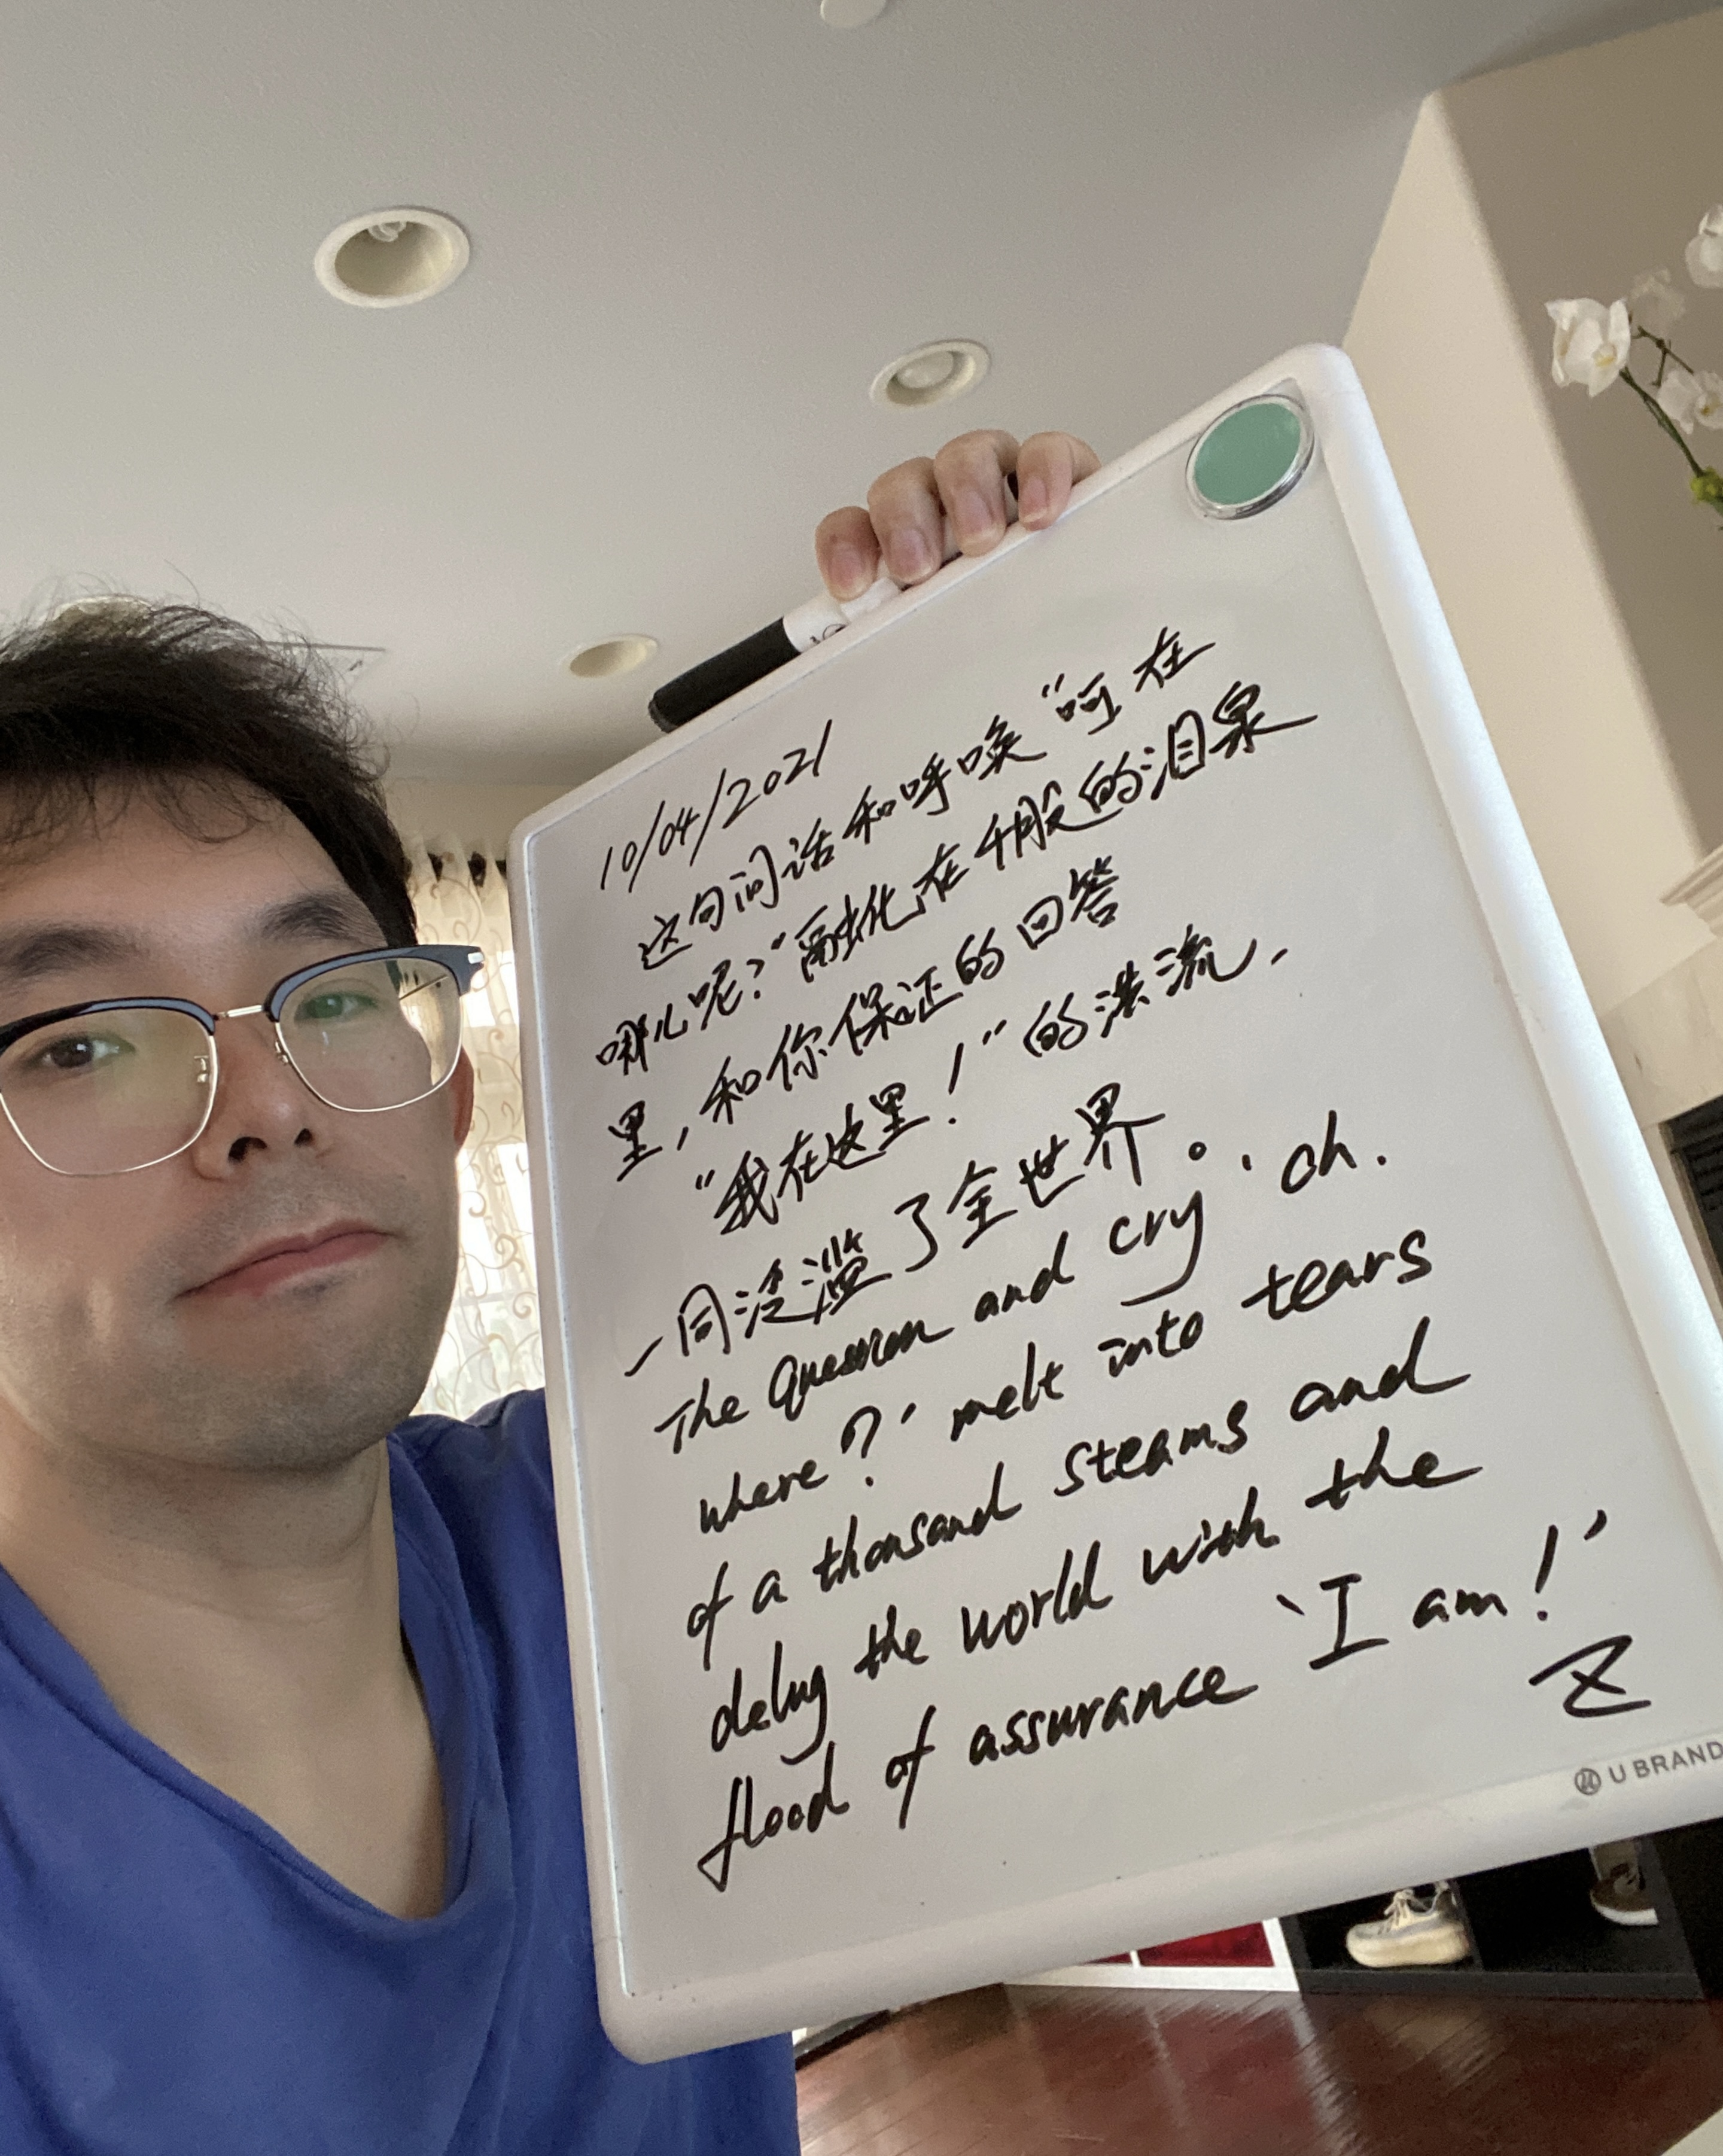 10/04/2021
这句问话和呼唤“呵在
哪儿呢?”融化在千股的泪泉
里,和你保证的回答
“我在这里!”的洪流,
一同泛滥了全世界。
The Question and cry 'Oh.
where?' melt into tears
of a thousand steams and
delug the world with the
flood of assurance 'I am!'
Z
U BRAND